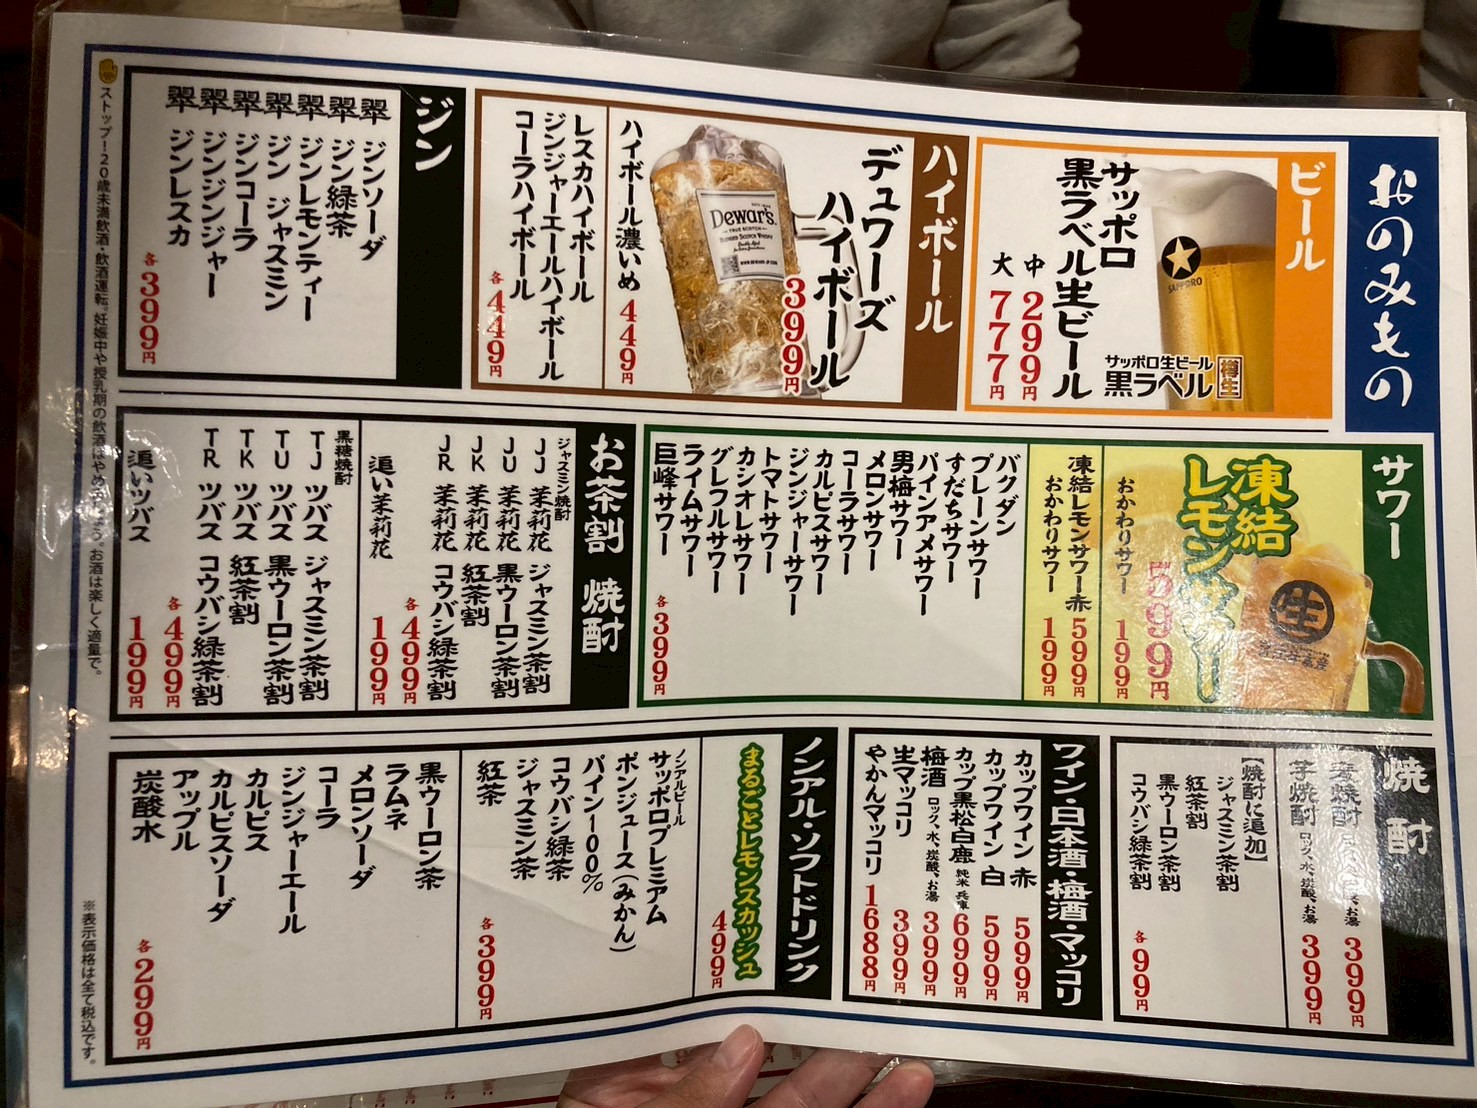 おのみもの
ビール
サッポロ
黒ラベル生ビール
中 299円
大 777円
SAPPORO
サッポロ生ビール
黒ラベル
樽生
ハイボール
デュワーズ
ハイボール
399円
Dewar's
TRUE SCOTCH
BLENDED SCOTCH WHISKY
ハイボール濃いめ 449円
レスカハイボール
ジンジャーエールハイボール
コーラハイボール
各449円
ジン
翠 ジンソーダ
翠 ジン緑茶
翠 ジンレモンティー
翠 ジン ジャスミン
翠 ジンコーラ
翠 ジンジンジャー
翠 ジンレスカ
各399円
サワー
凍結
レモンサワー
599円
生
おかわりサワー 199円
凍結レモンサワー赤 599円
おかわりサワー 199円
バクダン
プレーンサワー
すだちサワー
パインアメサワー
男梅サワー
メロンサワー
コーラサワー
カルピスサワー
ジンジャーサワー
トマトサワー
カシオレサワー
グレフルサワー
ライムサワー
巨峰サワー
各399円
お茶割 焼酎
ジャスミン焼酎
JJ 茉莉花 ジャスミン茶割
JU 茉莉花 黒ウーロン茶割
JK 茉莉花 紅茶割
JR 茉莉花 コウバシ緑茶割
各499円
追い茉莉花 199円
黒糖焼酎
TJ ツバス ジャスミン茶割
TU ツバス 黒ウーロン茶割
TK ツバス 紅茶割
TR ツバス コウバシ緑茶割
各499円
追いツバス 199円
焼酎
麦焼酎 399円
芋焼酎 ロック、水、炭酸、お湯 399円
【焼酎に追加】
ジャスミン茶割
紅茶割
黒ウーロン茶割
コウバシ緑茶割
各99円
ワイン・日本酒・梅酒・マッコリ
カップワイン 赤 599円
カップワイン 白 599円
カップ黒松白鹿 純米 兵庫 699円
梅酒 ロック、水、炭酸、お湯 399円
生マッコリ 399円
やかんマッコリ 1688円
ノンアル・ソフトドリンク
まるごとレモンスカッシュ
499円
ノンアルビール
サッポロプレミアム
ポンジュース(みかん)
パイン100%
コウバシ緑茶
ジャスミン茶
紅茶
各399円
黒ウーロン茶
ラムネ
メロンソーダ
コーラ
ジンジャーエール
カルピス
カルピスソーダ
アップル
炭酸水
各299円
ストップ!20歳未満飲酒・飲酒運転。妊娠中や授乳期の飲酒はやめましょう。お酒は楽しく適量で。
※表示価格は全て税込です。